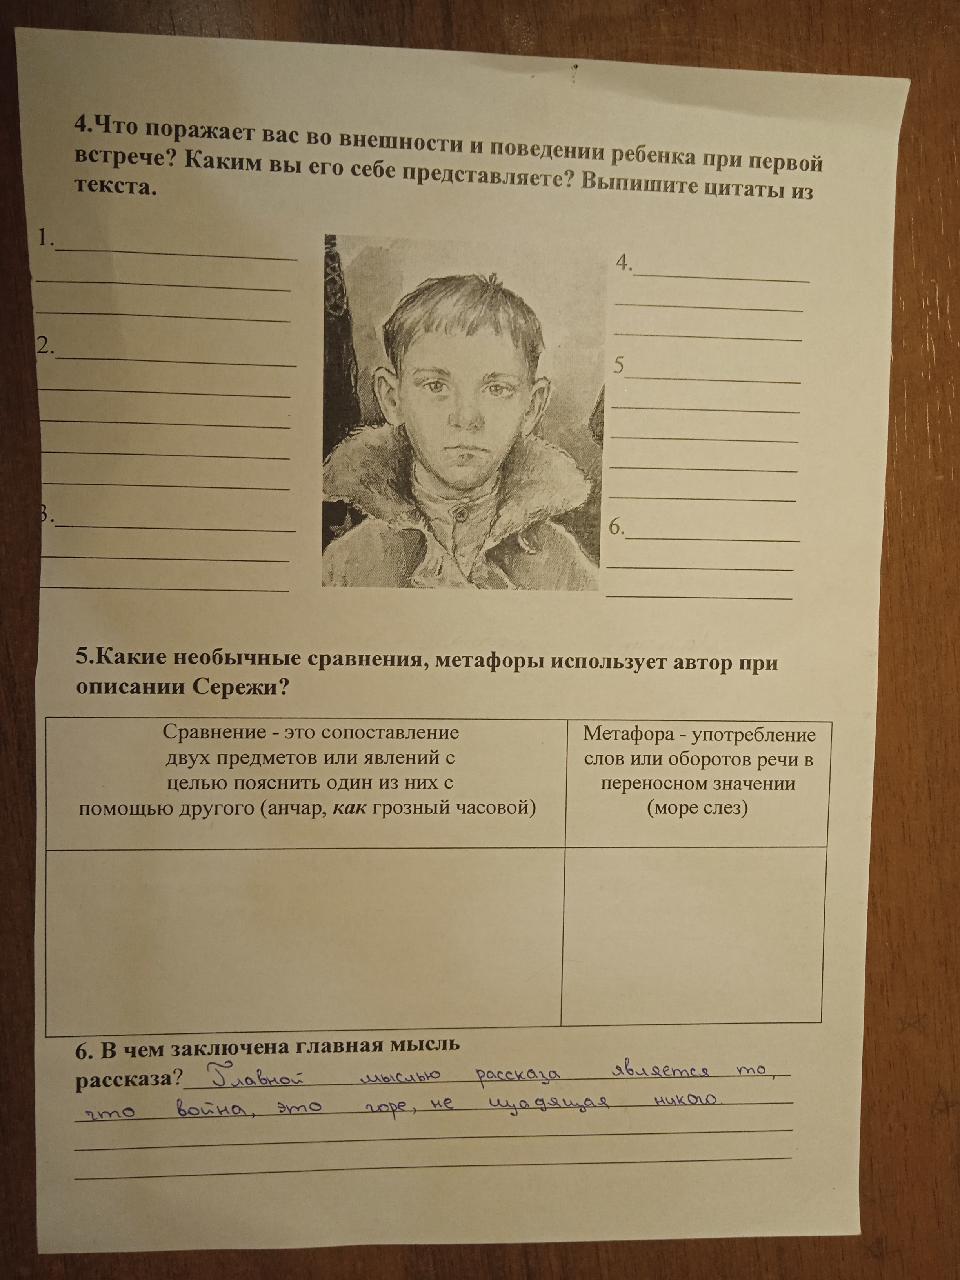 4.Что поражает вас во внешности и поведении ребенка при первой
встрече? Каким вы его себе представляете? Выпишите цитаты из
текста.
1.
2.
3.
4.
5
6.
5.Какие необычные сравнения, метафоры использует автор при
описании Сережи?
Сравнение - это сопоставление
двух предметов или явлений с
целью пояснить один из них с
помощью другого (анчар, как грозный часовой)
Метафора - употребление
слов или оборотов речи в
переносном значении
(море слез)
6. В чем заключена главная мысль
рассказа? Главной мыслью рассказа является то,
что война, это горе, не щадящая никого.